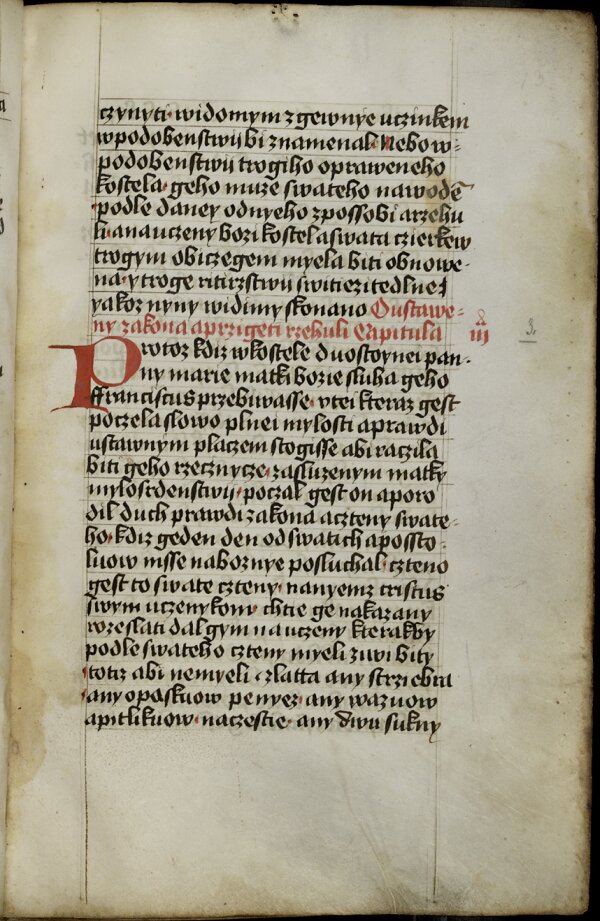 czynyti widomym z gewnye uczinkem
wpodobenstwij bi znamenal Nebo w-
podobenstwij trogiho opraweneho
kostela geho muze swateho nawodē
podle daney odnyeho zpossobi arzehu
li anauczeny bozi kostela swata czierkew
trogym obiczegem myela biti obnowe-
na y troge ritirzstwij switiezitedlnej
yakoz nyny widimy skonano Oustawe-
ny zakona aprzigeti rzehuli Capitula iij
3.
Protoz kdiz wkostele duostoynei pan-
ny marie matki bozie sluha geho
ffranciscus przebiwasse vtei kteraz gest
poczela slowo plnei mylosti aprawdi
ustawnym placzem stogisse abi raczila
biti geho rzecznycze zasluzenym matky
mylosrdenstwij poczal gest on aporo
dil duch prawdi zakona aczteny swate-
ho kdiz geden den od swatich apossto-
luow msse naboznye posluchal czteno
gest to swate czteny nanyemz cristus
swym uczenykom chtie ge nakazany
rozeslati dal gym nauczeny kterakby
podle swateho czteny myeli ziwi bity
totiz abi nemyeli zlatta any strziebra
any opaskuow penyez any wazuow
apitlikuow naczestie any dwu sukny